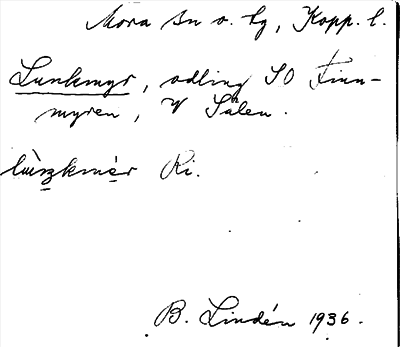 Mora Sn o. Lg, Kopp. l.
Lunkmyr, odling SO Finn-
myren, V Sälen.
Ri.
B. Lindén 1936.